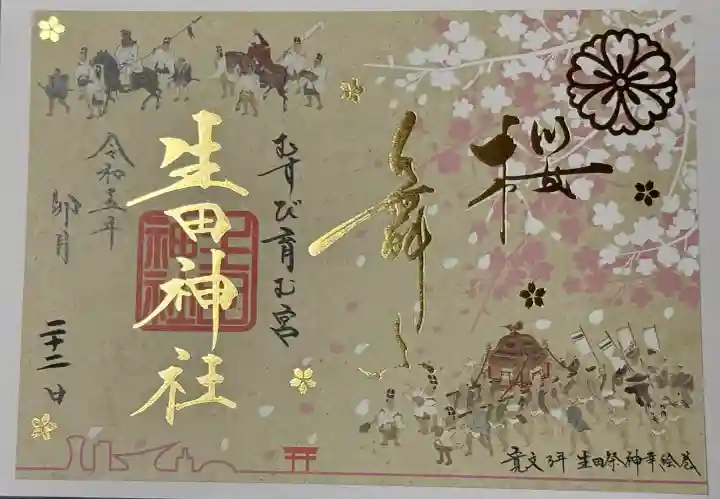 櫻
舞
むすび育む宮
生田神社
生田神社
令和五年
卯月
二十二日
生田祭神幸絵巻